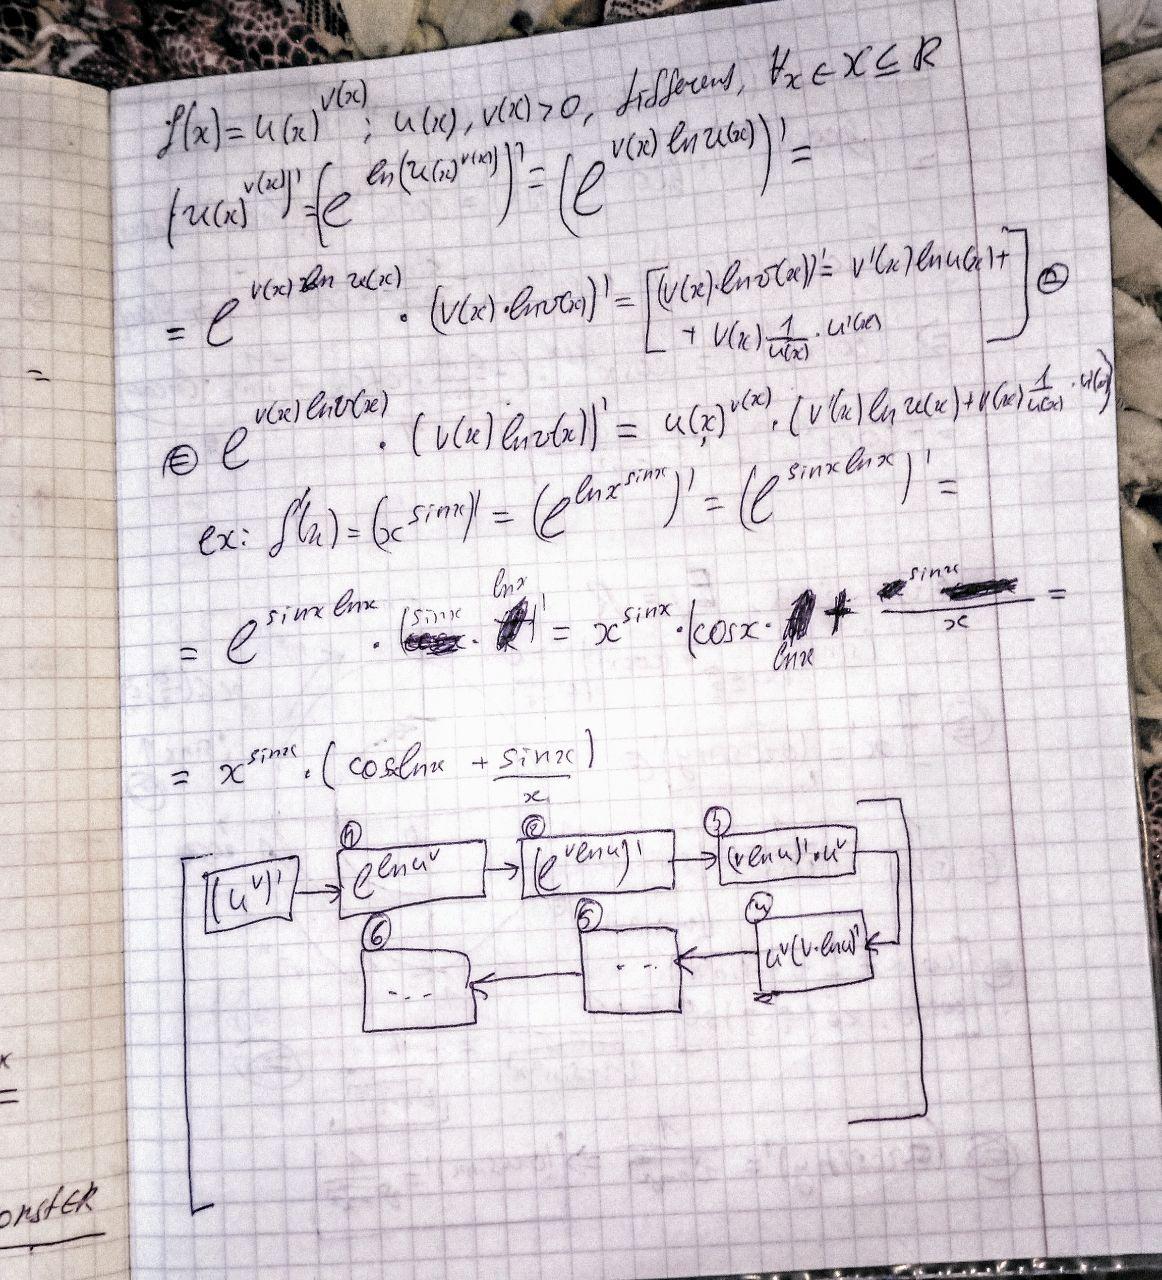 f(x) = u(x)^v(x) ; u(x), v(x) > 0, different, ∀x ∈ X ⊆ R
(u(x)^v(x))' = (e^ln(u(x)^v(x)))' = (e^v(x) ln u(x))' =
= e^v(x) ln u(x) · (v(x)·ln v(x))' = [(v(x)·ln v(x))' = v'(x) ln u(x) +
+ v(x) 1/u(x) · u'(x)] ⊜
⊜ e^v(x) ln v(x) · (v(x) ln v(x))' = u(x)^v(x) · (v'(x) ln u(x) + v(x) 1/u(x) · u'(x))
ex: f'(x) = (x^sinx)' = (e^lnx^sinx)' = (e^sinx lnx)' =
= e^sinx lnx · (sinx · lnx)' = x^sinx · (cosx · lnx + sinx/x =
= x^sinx · (cosxlnx + sinx/x)
1 2 3
(u^v)' → e^ln u^v → (e^v ln u)' → (v ln u)' · u^v
6 5 4
... ← ... ← u^v(v·ln u)'
=
x
=
onstER